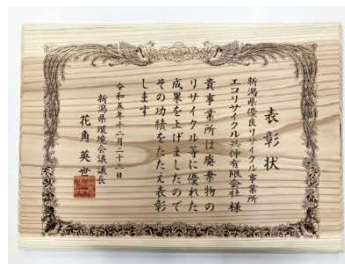 表彰状
新潟県優良リサイクル事業所
エコリサイクル共伸有限会社 様
貴事業所は廃棄物の
リサイクル等に優れた
成果を上げましたので
その功績をたたえ表彰
します
令和五年十二月二十二日
新潟県環境会議議長
花角英世